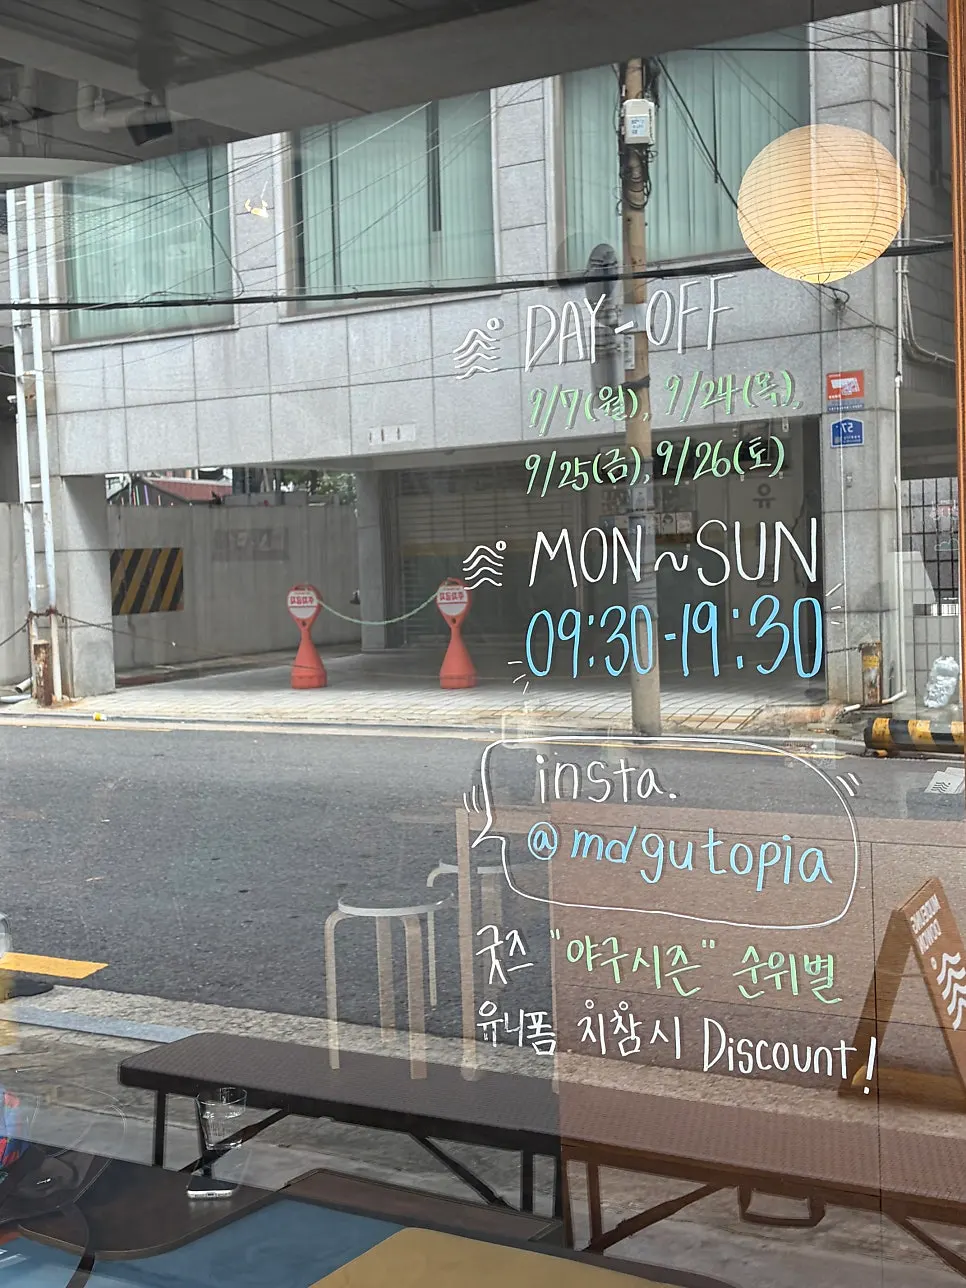 DAY-OFF
9/7(월), 9/24(목),
9/25(금), 9/26(토)
MON~SUN
09:30-19:30
insta.
@mdgutopia
굿즈 "야구시즌" 순위별
유니폼 지참시 Discount!
57